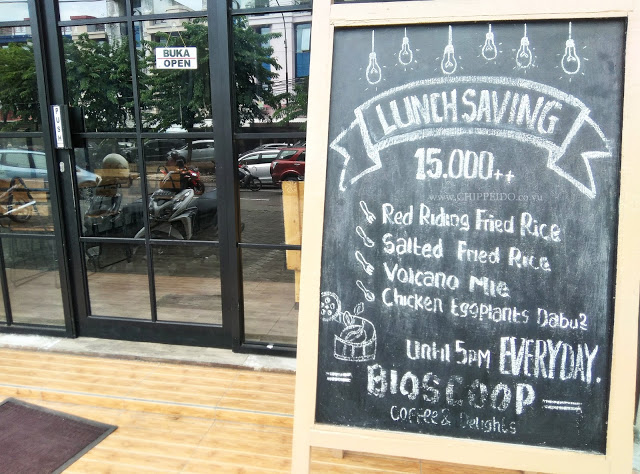 BUKA
OPEN
PUSH
LUNCH SAVING
15.000++
www.CHIPPRIDO.co.vu
Red Riding Fried Rice
Salted Fried Rice
Volcano Mie
Chicken Eggplants Dabu2
Until 5PM EVERYDAY.
= BIOSCOOP =
Coffee & Delights